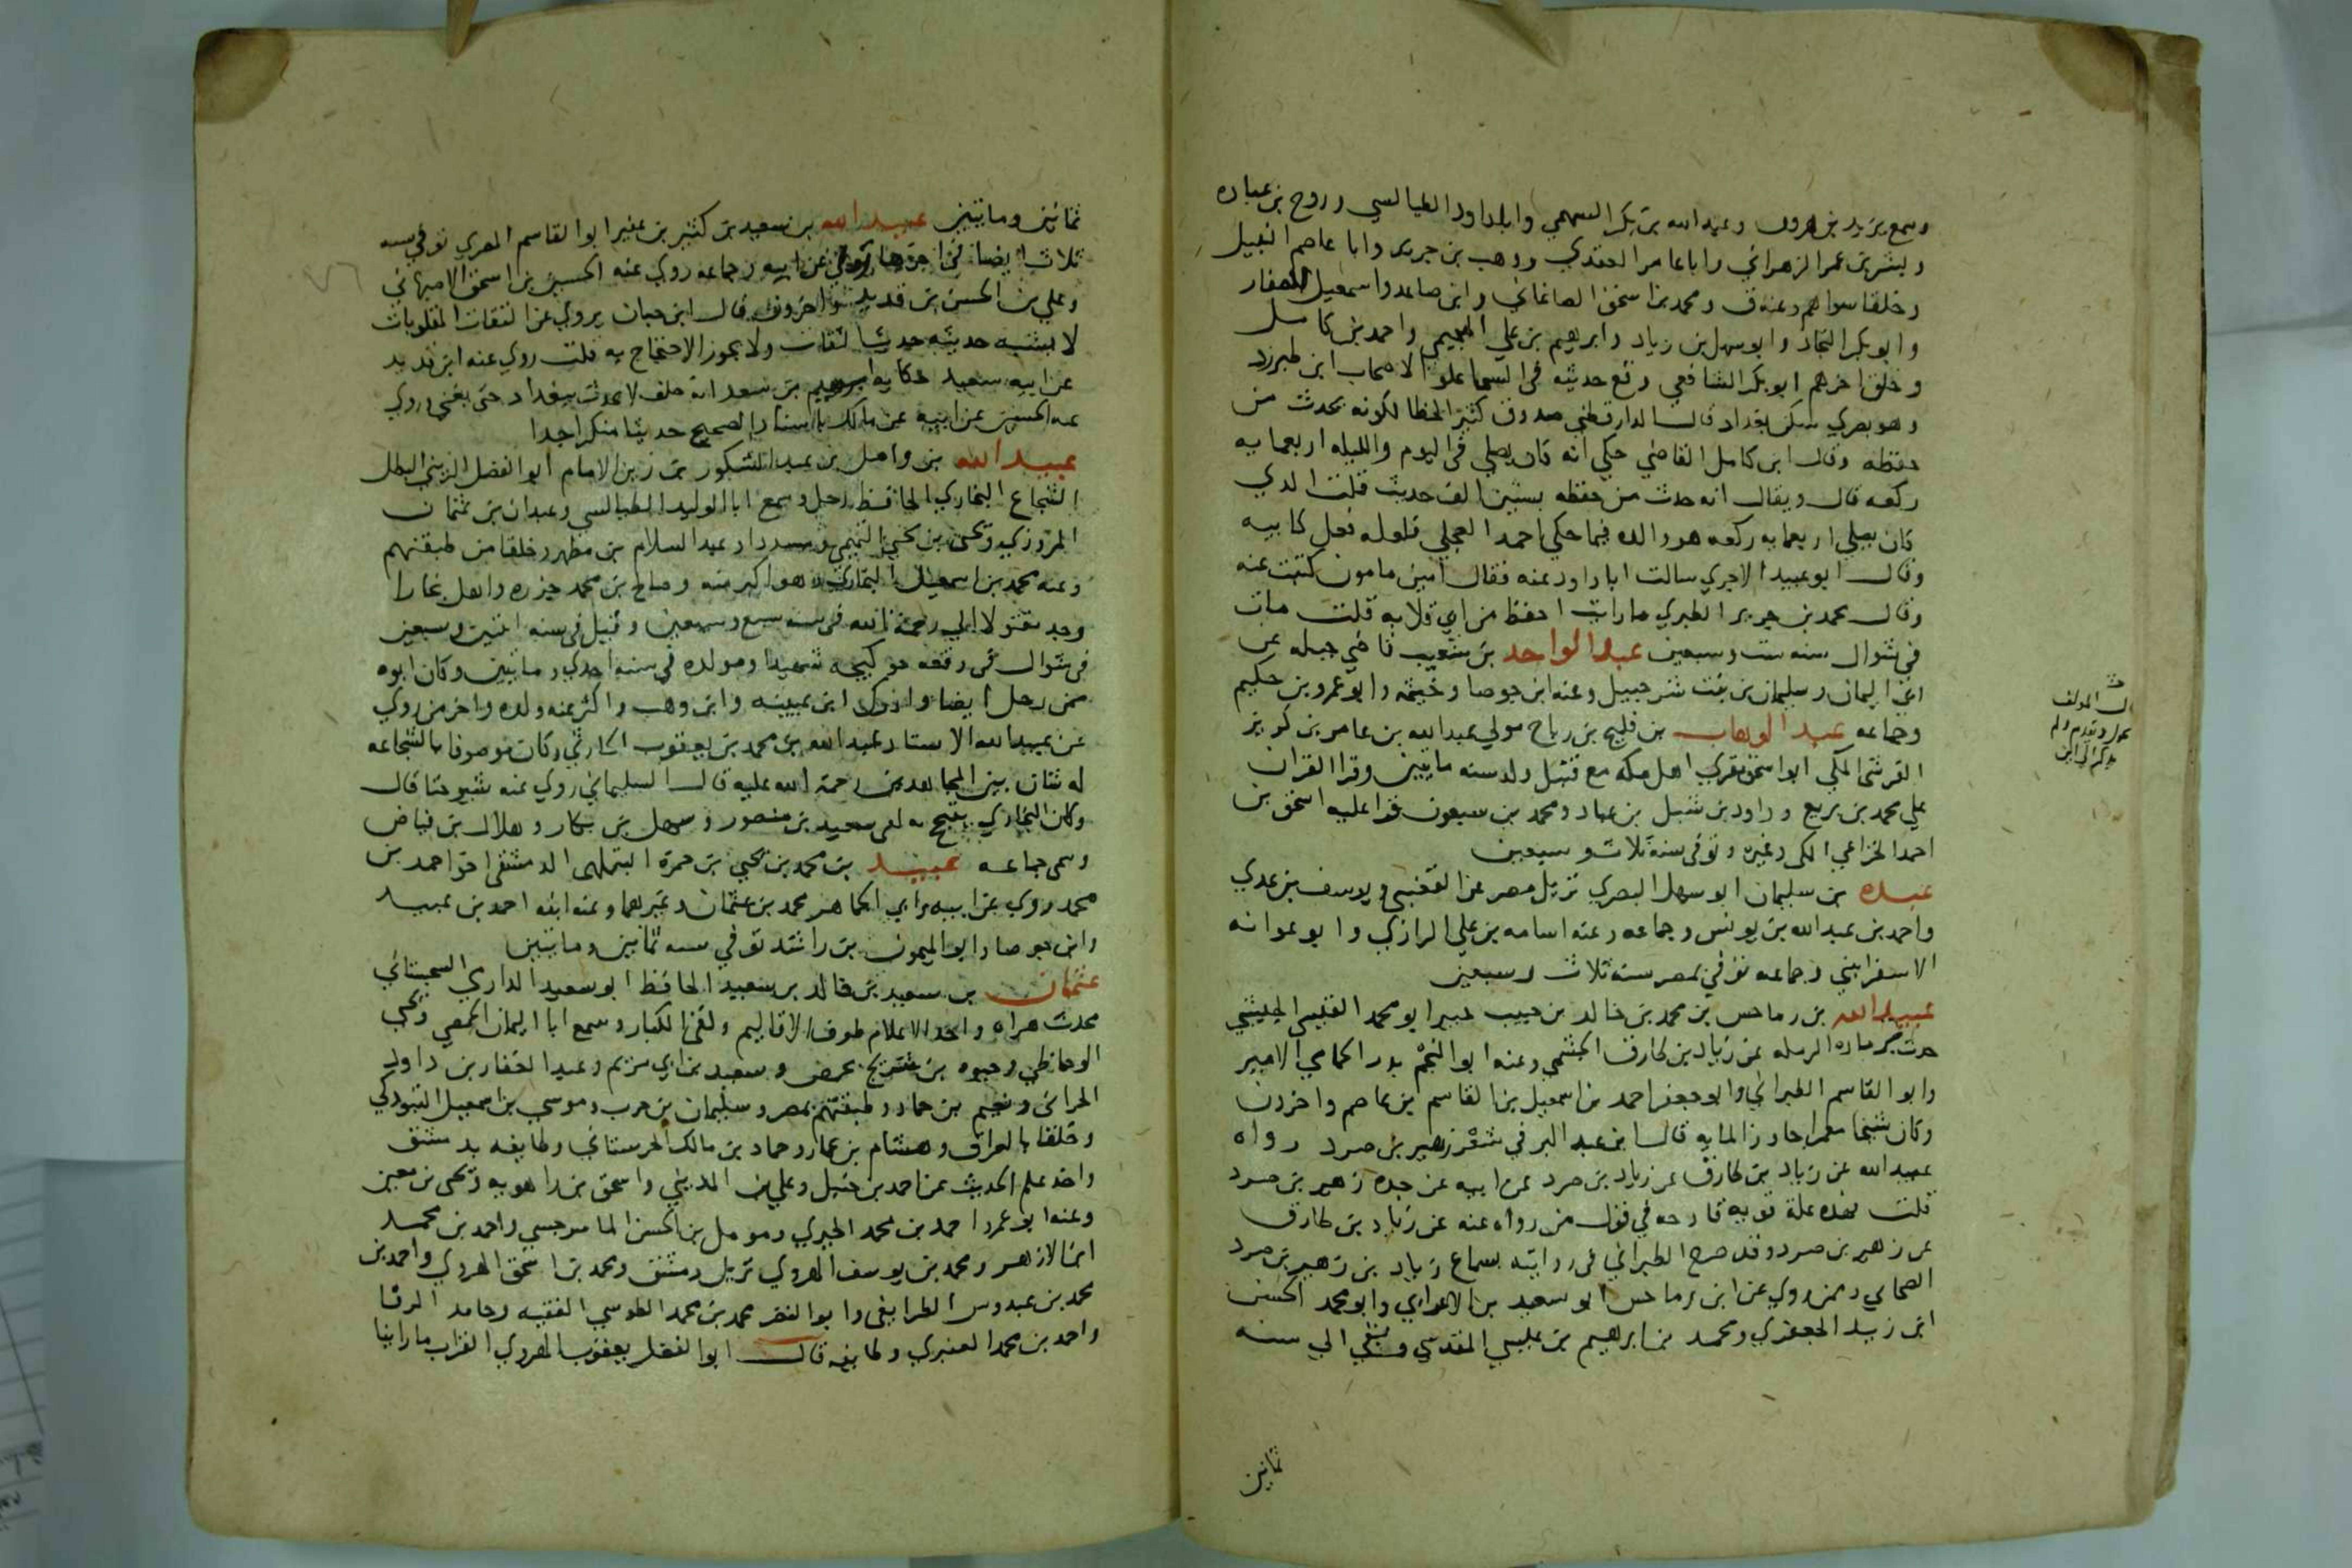 وسمع يزيد بن هرون وعبد الله بن بكر السهمي وابا داود الطيالسي وروح بن عباده
وبشر بن عمر الزهراني وابا عامر العقدي ووهب بن جرير وابا عاصم النبيل
وخلقا سواهم وعنه ق ومحمد بن اسحق الصاغاني وابن صاعد واسمعيل الصفار
وابو بكر النجاد وابو سهل بن زياد وابرهيم بن علي الهجيمي واحمد بن كامل
وخلق اخرهم ابو بكر الشافعي وقع حديثه في السما علوا لاصحاب ابن طبرزد
وهو بصري سكن بغداد قال الدارقطني صدوق كثير الخطا لكونه يحدث من
حفظه وقال ابن كامل القاضي حكي انه كان يصلي في اليوم والليله اربعمايه
ركعه قال ويقال انه حدث من حفظه بستين الف حديث قلت الذي
كان يصلي اربعمايه ركعه هو والده فيما حكي احمد العجلي فلعله فعل كابيه
وقال ابو عبيد الاجري سالت ابا داود عنه فقال امين مامون كتبت عنه
وقال محمد بن جرير الطبري ما رايت احفظ من ابي قلابه قلت مات
في شوال سنه ست وسبعين عبد الواحد بن شعيب قاضي جبله عن
ابي اليمان وسليمان بن بنت شرحبيل وعنه ابن جوصا وخيثمه وابو عمرو بن حكيم
وجماعه عبد الوهاب بن فليح بن رباح مولي عبد الله بن عامر بن كريز
القرشي المكي ابو اسحق مقري اهل مكه مع قنبل ولد سنه مايتين وقرا القران
علي محمد بن بزيع وداود بن شبل بن عباد ومحمد بن سبعون قرا عليه اسحق بن
احمد الخزاعي المكي وغيره وتوفي سنة ثلاث وسبعين
عبده بن سليمان ابو سهل البصري نزيل مصر عن القعنبي ويوسف بن عدي
واحمد بن عبد الله بن يونس وجماعه وعنه اسامه بن علي الرازي وابو عوانه
الاسفرايني وجماعه توفي بمصر سنة ثلاث وسبعين
عبيد الله بن رماحس بن محمد بن خالد بن حبيب ابو محمد القيسي الجشمي
حدث برماده الرمله عن زياد بن طارق الجشمي وعنه ابو النجم بدر الحمامي الامير
وابو القاسم الطبراني وابو جعفر احمد بن اسمعيل بن القاسم بن عاصم واخرون
وكان شيخا معمرا جاوز المايه قال ابن عبد البر في شعر زهير بن صرد رواه
عبيد الله عن زياد بن طارق عن زياد بن صرد عن ابيه عن جده زهير بن صرد
قلت فهذه علة قويه قادحه في قول من رواه عنه عن زياد بن طارق
عن زهير بن صرد وقد صرح الطبراني في روايته بسماع زياد بن زهير بن صرد
الصحابي وممن روي عن ابن رماحس ابو سعيد بن الاعرابي وابو محمد الحسن
ابن زيد الجعفري ومحمد بن ابرهيم بن عيسي المقدسي وبقي الي سنه
ثمانين
المولف
ثمانين ومايتين عبيد الله بن سعيد بن كثير بن عفير ابو القاسم المصري توفي سنه
ثلاث ايضا في اخرها روي عن ابيه وجماعه روي عنه الحسين بن اسحق الاصبهاني
وعلي بن الحسن بن قديد واخرون قال ابن حبان يروي عن الثقات المقلوبات
لا يشبه حديثه حديث الثقات ولا يجوز الاحتجاج به قلت روي عنه ابن قديد
عن ابيه سعيد حكايه ابرهيم بن سعد انه حلف لا يحدث ببغداد حتي يغني وروي
عنه الحسين عن ابيه عن مالك باسناد الصحيح حديثا منكرا جدا
عبيد الله بن واصل بن عبد الشكور بن زين الامام ابو الفضل الزيني البطل
الشجاع البخاري الحافظ رحل وسمع ابا الوليد الطيالسي وعبدان بن عثمان
المروزي ويحيي بن يحيي التميمي ومسددا وعبد السلام بن مطهر وخلقا من طبقتهم
وعنه محمد بن اسمعيل البخاري وهو اكبر منه وصالح بن محمد جزره واهل بخارا
وجد مقتولا الي رحمة الله في سنه سبع وسبعين وقيل في سنه اثنتين وسبعين
في شوال في وقعه خوكيجه شهيدا ومولده في سنه احدي ومايتين وكان ابوه
ممن رحل ايضا وادرك ابن عيينه وابن وهب واكثر عنه ولده واخر من روي
عن عبيد الله الاستاد عبد الله بن محمد بن يعقوب الحارثي وكان موصوفا بالشجاعه
له شان بين المجاهدين رحمة الله عليه قال السليماني روي عنه شيوخنا قال
وكان البخاري يتبجح به لقي سعيد بن منصور وسهل بن بكار وهلال بن فياض
وسمي جماعه عبيد بن محمد بن يحيي بن حمزه البتلهي الدمشقي اخو احمد بن
محمد روي عن ابيه وابي الجماهر محمد بن عثمان وغيرهما وعنه ابنه احمد بن عبيد
وابن جوصا وابو الميمون بن راشد توفي سنه ثمانين ومايتين
عثمان بن سعيد بن خالد بن سعيد الحافظ ابو سعيد الدارمي السجستاني
محدث هراه واحد الاعلام طوف الاقاليم ولقي الكبار وسمع ابا اليمان الحمصي ويحيي
الوحاظي وحيوه بن شريح بحمص وسعيد بن ابي مريم وعبد الغفار بن داود
الحراني ونعيم بن حماد وطبقتهم بمصر وسليمان بن حرب وموسي بن اسمعيل التبوذكي
وخلقا بالعراق وهشام بن عمار وحماد بن مالك الحرستاني وطايفه بدمشق
واخذ علم الحديث عن احمد بن حنبل وعلي بن المديني واسحق بن راهويه ويحيي بن معين
وعنه ابو عمرو احمد بن محمد الحيري ومومل بن الحسن الماسرجسي واحمد بن محمد
ابن الازهر ومحمد بن يوسف الهروي نزيل دمشق ومحمد بن اسحق الهروي واحمد بن
محمد بن عبدوس الطرايفي وابو النضر محمد بن محمد الطوسي الفقيه وحامد الرفا
واحمد بن محمد العنبري وطايفه قال ابو الفضل يعقوب الهروي القراب ما راينا